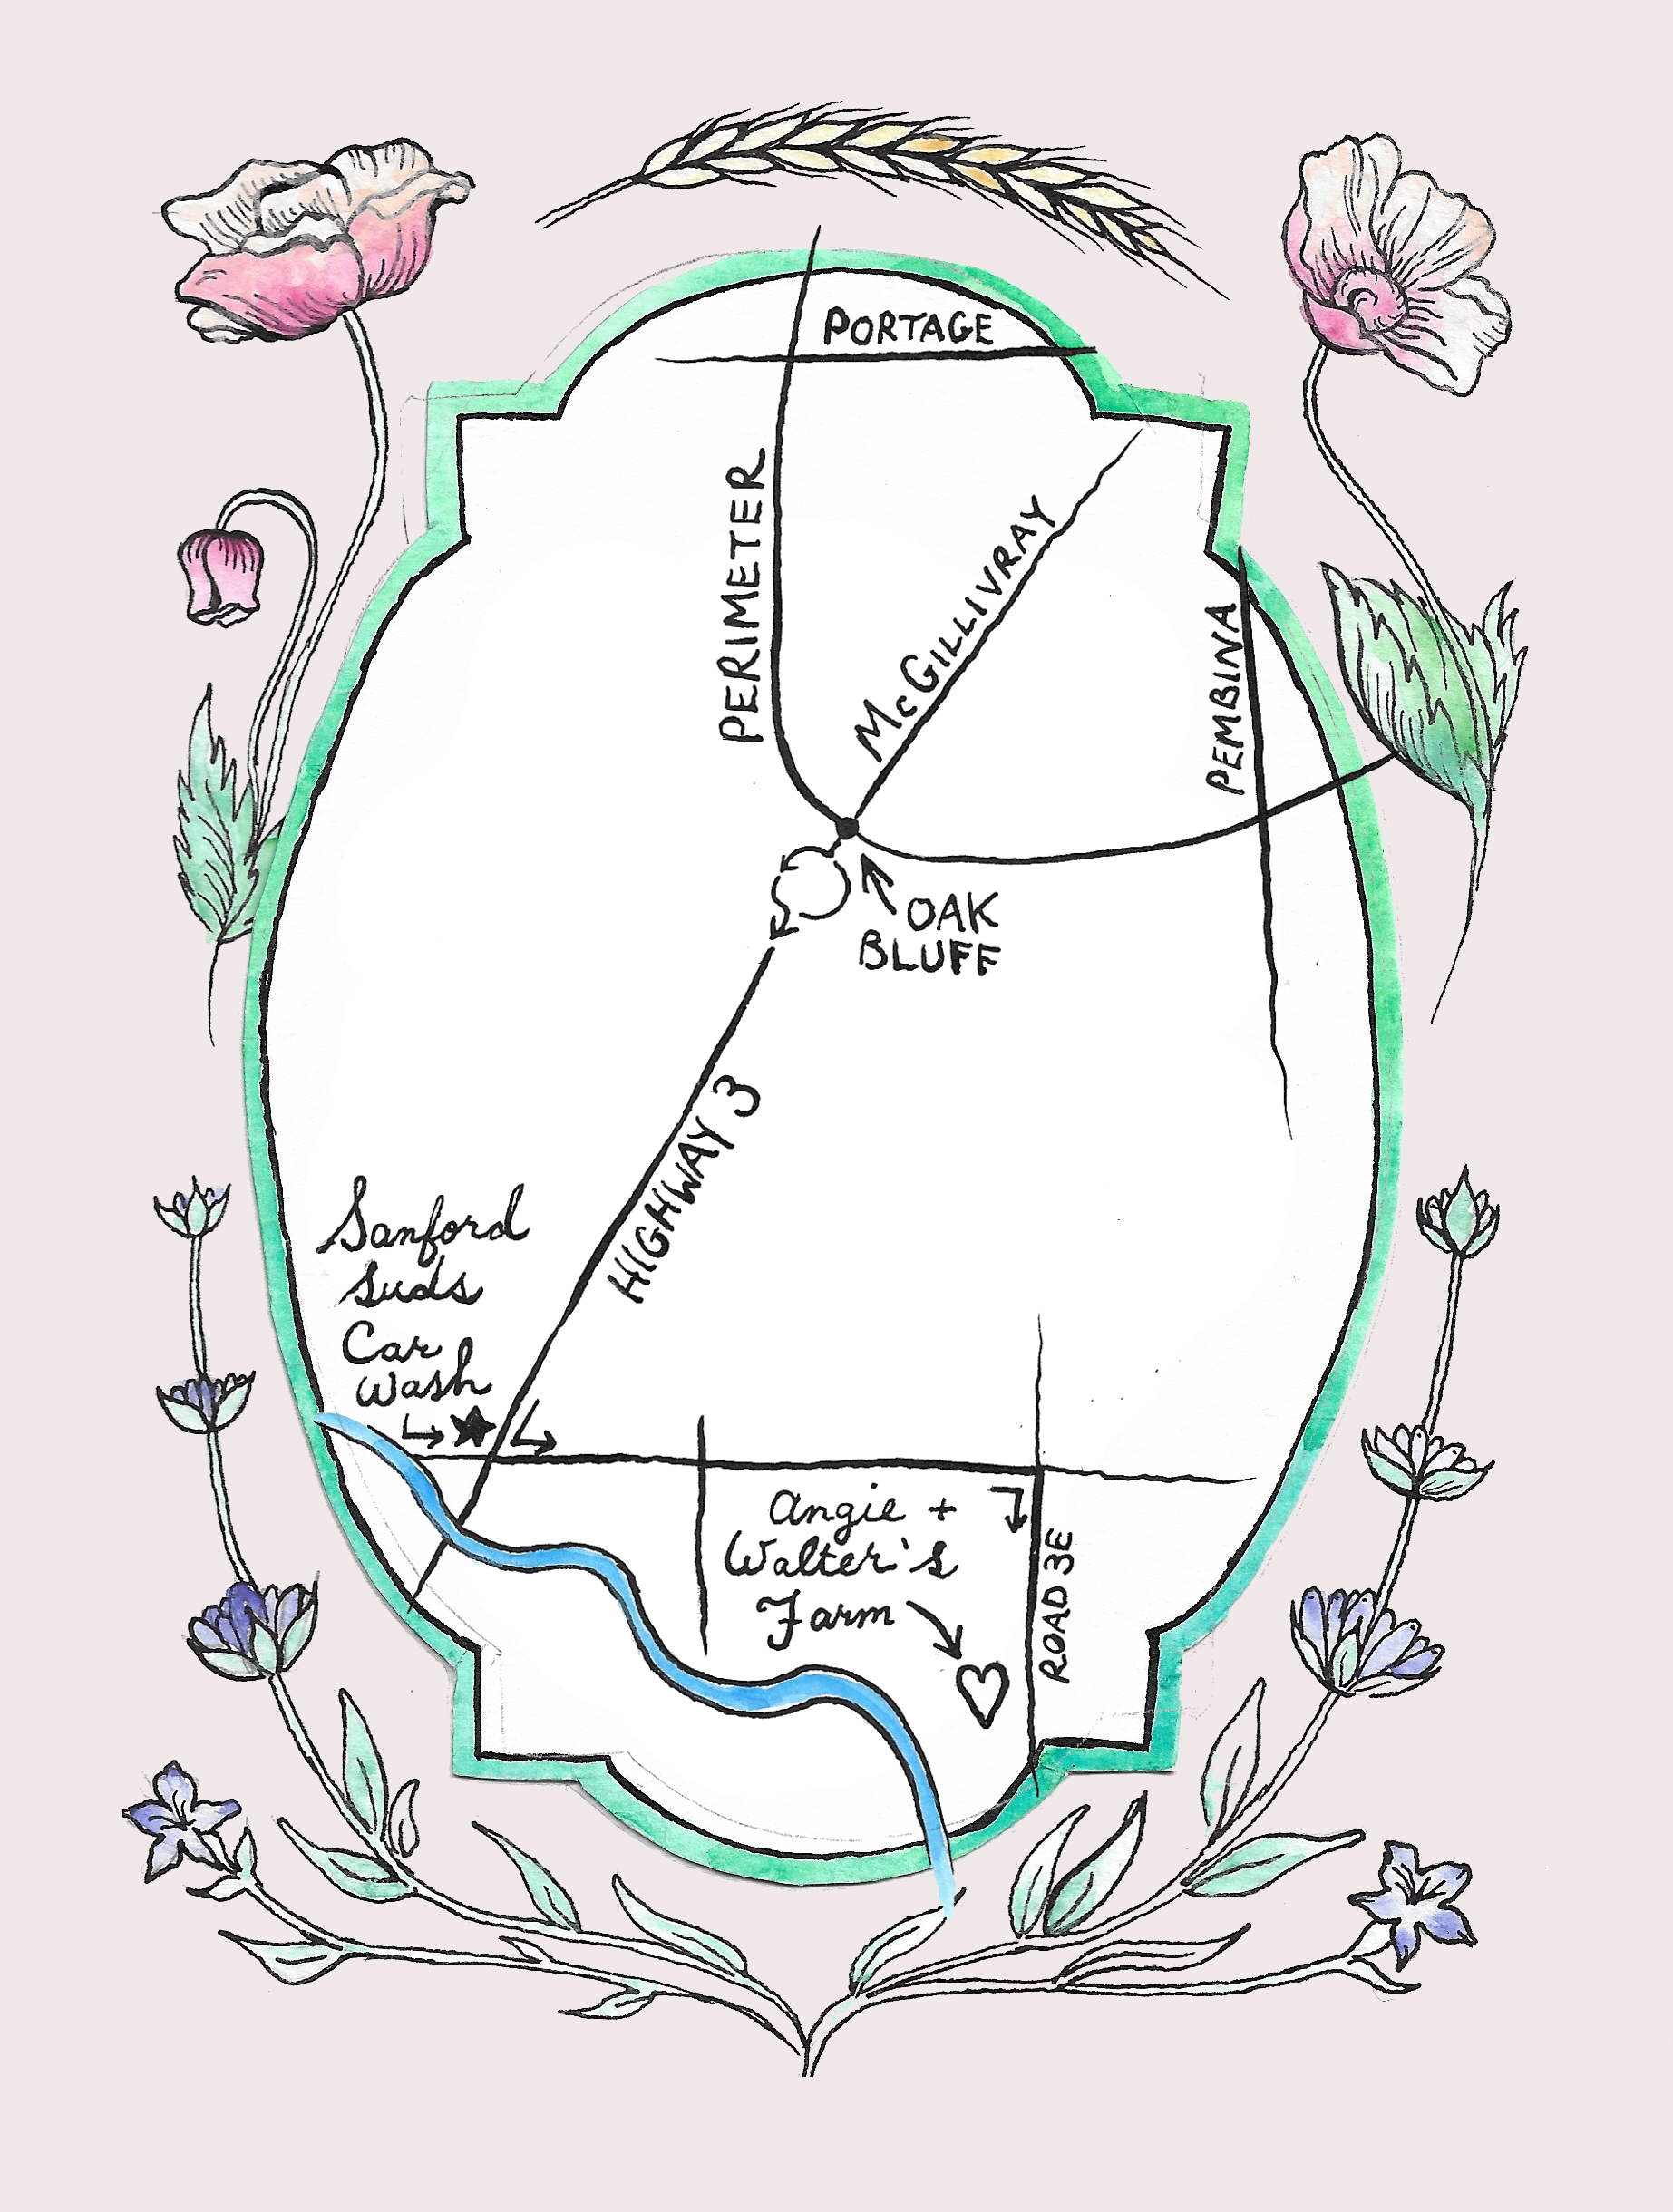 PORTAGE
PERIMETER
McGILLIVRAY
PEMBINA
OAK
BLUFF
HIGHWAY 3
Sanford
Suds
Car
Wash
Angie +
Walter's
Farm
ROAD 3E